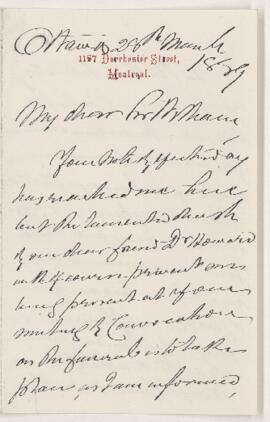 Ottawa 28th March
1157 Dorchester Street,
Montreal.
1889
My dear Sir William
Your note of yesterday
has reached me here
but the lamented death
of our dear friend Dr Howard
will of course prevent my
being present at your
meeting of Convocation
as the funeral is to take
place, as I am informed,